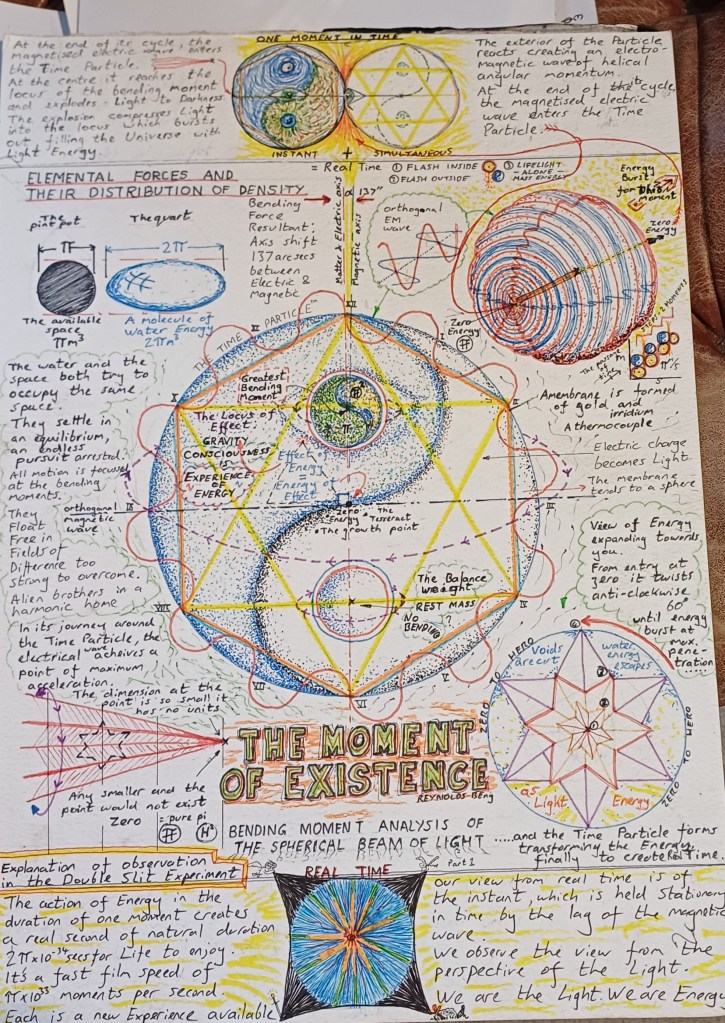 At the end of its cycle, the
magnetised electric wave enters
the Time Particle.
At the centre it reaches the
locus of the bending moment
and explodes - Light to Darkness.
The explosion compresses Light
into the locus which bursts
out filling the Universe with
Light Energy.
ONE MOMENT IN TIME
INSTANT + SIMULTANEOUS
The exterior of the Particle
reacts creating an electro-
magnetic wave of helical
angular momentum.
At the end of its cycle,
the magnetised electric
wave enters the Time
Particle.
= Real Time ① FLASH INSIDE
② FLASH OUTSIDE
③ LIFELIGHT
- ALONE -
MASS ENERGY
Energy
Burst
for this
Moment
ELEMENTAL FORCES AND
THEIR DISTRIBUTION OF DENSITY
The
pint pot
The quart
π
2π
The available
space
πm³
A molecule of
Water Energy
2πm³
Bending
Force
Resultant:
Axis shift
137 arcsecs
between
Electric &
Magnetic
137"
Matter Electric axis
Magnetic axis
orthogonal
EM
wave
Zero
Energy
2 MOMENTS
π/s
The water and the
space both try to
occupy the same
space.
They settle in
an equilibrium,
an endless
pursuit arrested.
All motion is focused
at the bending
moments.
They
Float
Free in
Fields of
Difference too
strong to overcome.
Alien brothers in a
harmonic home
orthogonal
magnetic
wave
TIME PARTICLE™
XII
XI
X
IX
VIII
VII
VI
V
III
II
I
Zero
Energy
Greatest
Bending
Moment
The Locus of
Effect.
GRAVITY
CONSCIOUSNESS
IS
EXPERIENCE
OF
ENERGY
Effect of
Energy
=
Energy of
Effect
Zero
Energy
The
Tesseract
The growth point
The Balance
weight
REST MASS
NO
BENDING?
A membrane is formed
of gold and
irridium
A thermocouple
Electric charge
becomes Light
The membrane
tends to a sphere
View of Energy
expanding towards
you.
From entry at
zero it twists
anti-clockwise
60°
until energy
burst at
max.
pene-
tration
In its journey around
the Time Particle, the
electrical wave acheives a
point of maximum
acceleration.
The dimension at the
point is so small it
has no units
Any smaller and the
point would not exist
Zero = pure pi
THE MOMENT
OF EXISTENCE
REYNOLDS. BEng
BENDING MOMENT ANALYSIS OF
THE SPHERICAL BEAM OF LIGHT
Part 1
Voids
are cut
water
energy
escapes
as
Light
Energy
ZERO TO HERO
ZERO TO HERO
.....and the Time Particle forms
transforming the Energy
finally to create Real Time.
Explanation of observation
in the Double Slit Experiment
The action of Energy in the
duration of one moment creates
a real second of natural duration
2π×10⁻³⁴ secs for Life to enjoy.
It's a fast film speed of
π×10³³ moments per second.
Each is a new Experience available
REAL TIME
Our view from real time is of
the instant, which is held Stationary
in time by the lag of the magnetic
wave.
We observe the view from the
perspective of the Light.
We are the Light. We are Energy